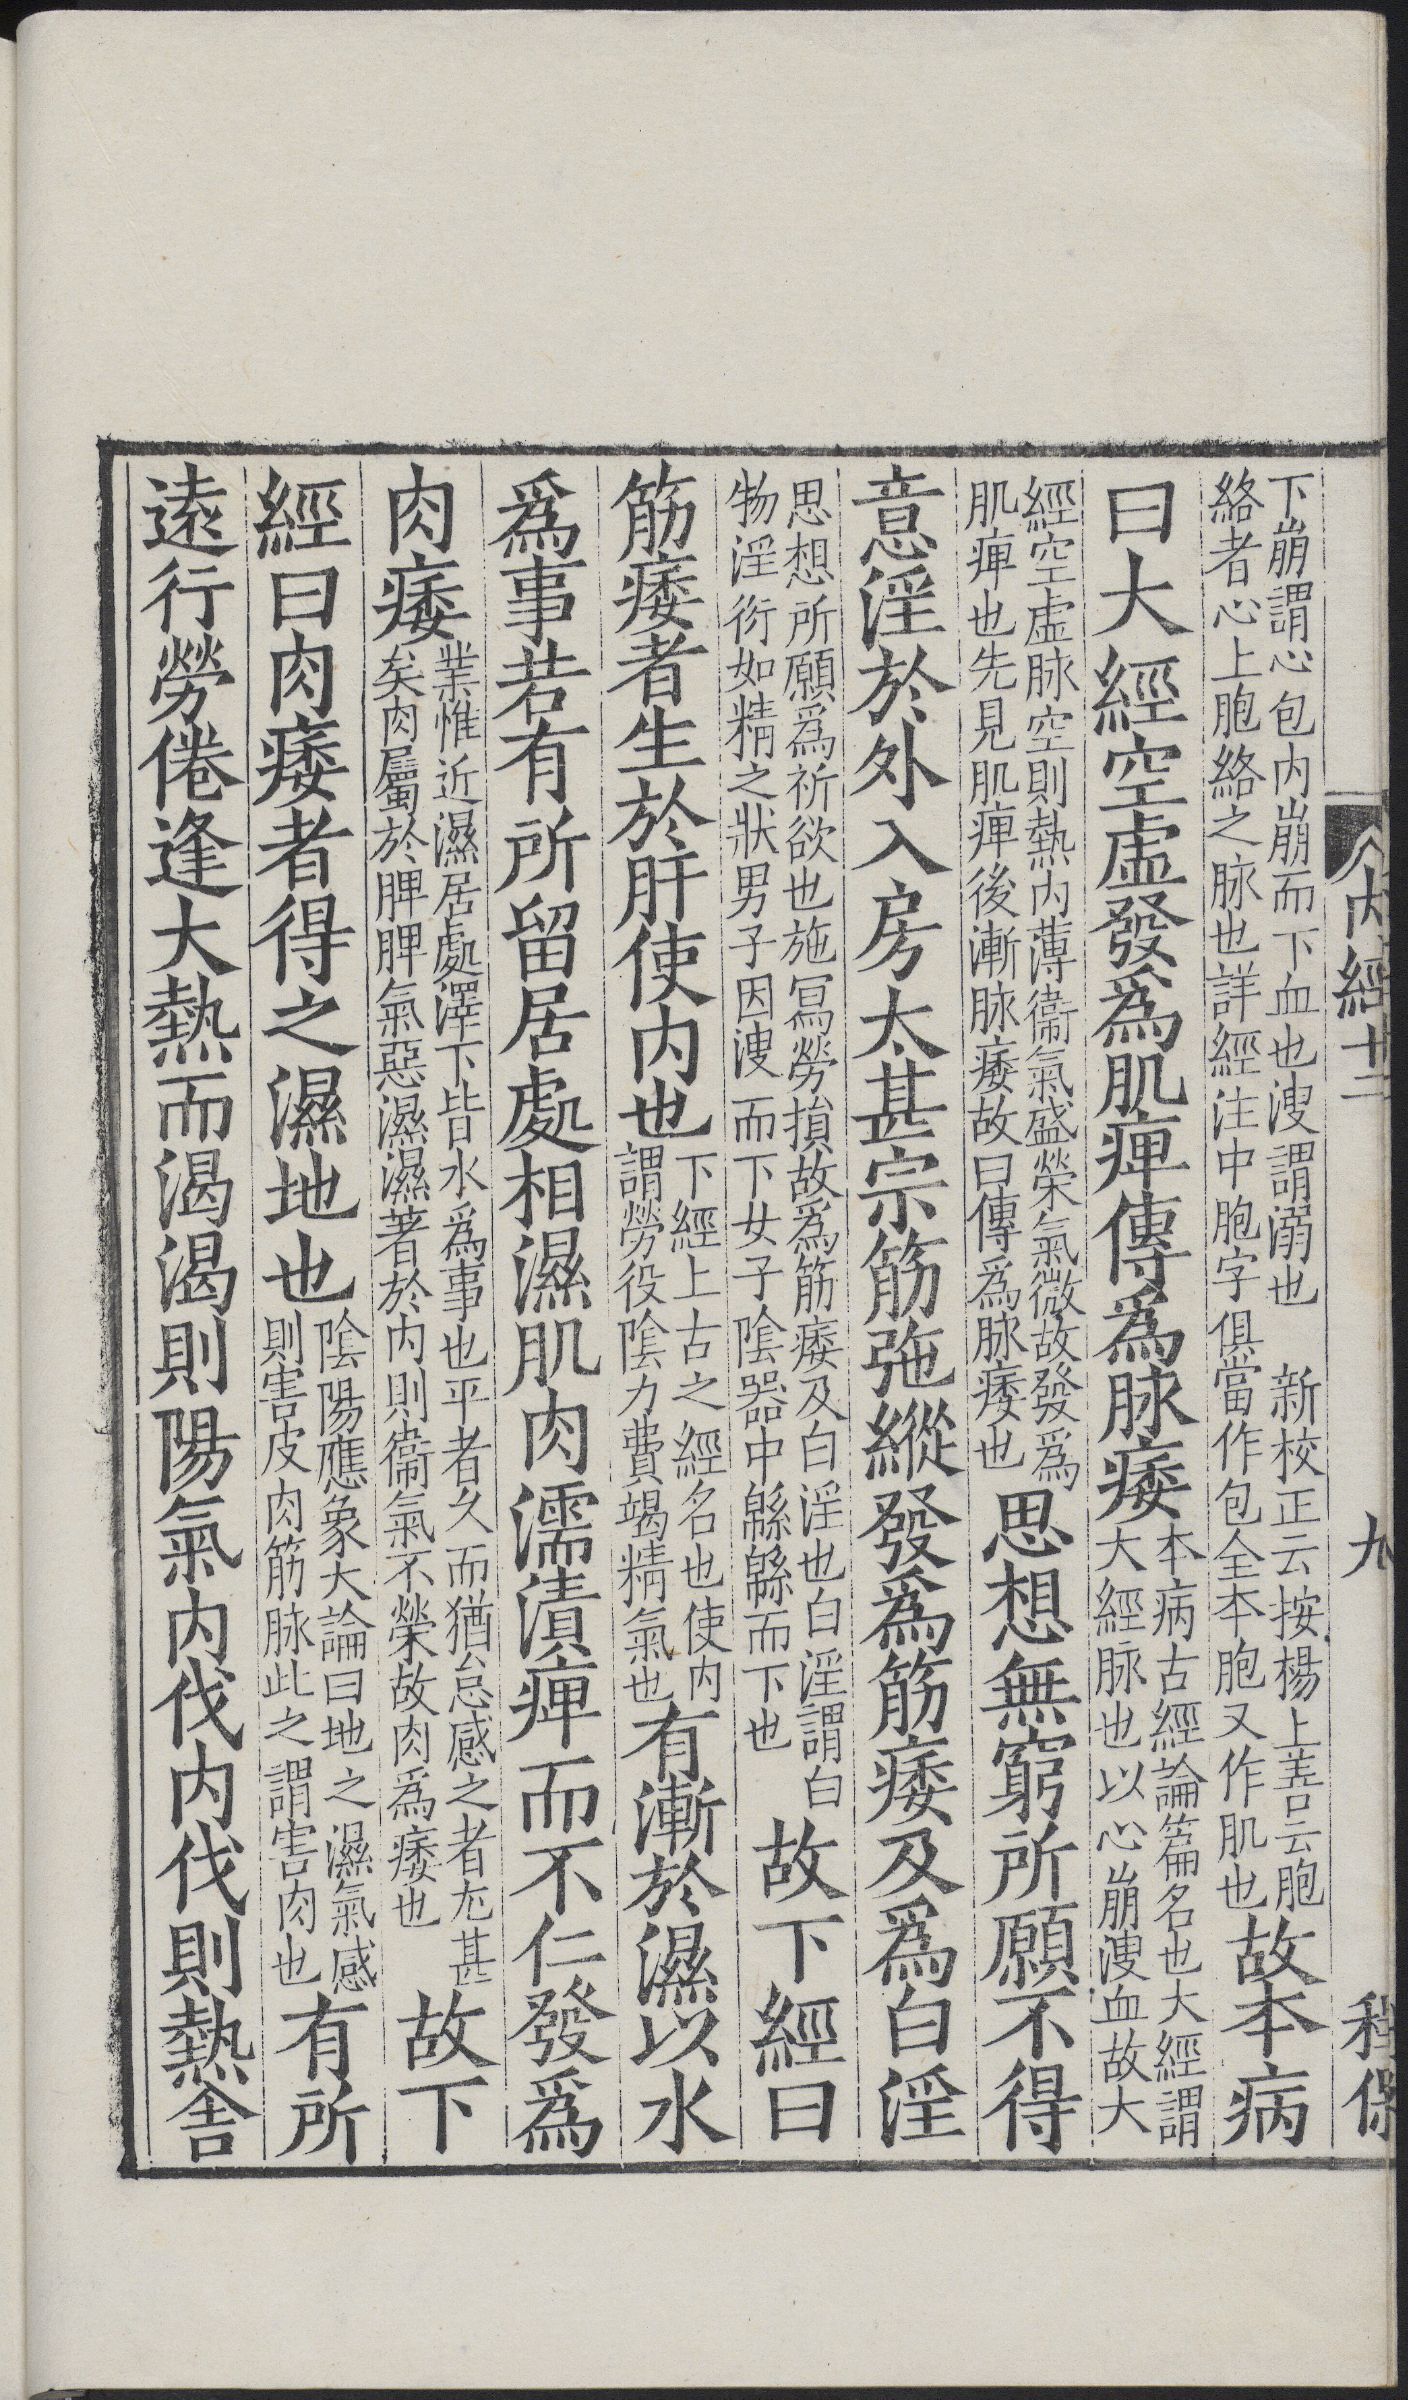 內經十二
九
下崩謂心包内崩而下血也溲謂溺也　新校正云按楊上善云胞
絡者心上胞絡之脉也詳經注中胞字俱當作包全本胞又作肌也
故本病
曰大經空虛發爲肌痺傳爲脉痿
本病古經論篇名也大經謂
大經脉也以心崩溲血故大
經空虛脉空則熱内薄衞氣盛榮氣微故發爲
肌痺也先見肌痺後漸脉痿故曰傳爲脉痿也
思想無窮所願不得
意淫於外入房太甚宗筋弛縱發爲筋痿及爲白淫
思想所願爲祈欲也施寫勞損故爲筋痿及白淫也白淫謂白
物淫衍如精之狀男子因溲而下女子陰器中緜緜而下也
故下經曰
筋痿者生於肝使内也
下經上古之經名也使内
謂勞役陰力費竭精氣也
有漸於濕以水
爲事若有所留居處相濕肌肉濡漬痺而不仁發爲
肉痿
業惟近濕居處澤下皆水爲事也平者久而猶怠感之者尤甚
矣肉屬於脾脾氣惡濕濕著於内則衞氣不榮故肉爲痿也
故下
經曰肉痿者得之濕地也
陰陽應象大論曰地之濕氣感
則害皮肉筋脉此之謂害肉也
有所
遠行勞倦逢大熱而渴渴則陽氣内伐内伐則熱舍